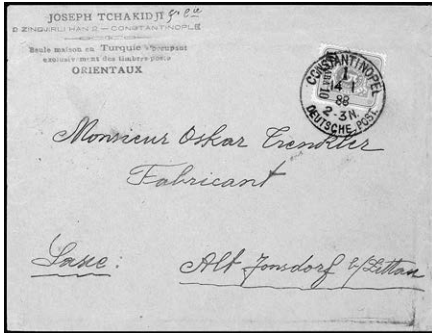 JOSEPH TCHAKIDJI
D ZINGIRLI HAN 2 — CONSTANTINOPLE
Seule maison en Turquie s'occupant
exclusivement des timbres poste
ORIENTAUX
CONSTANTINOPEL
1
14 1
88
2-3N.
DEUTSCHE POST
Monsieur Oskar Trenkler
Fabricant
Saxe: Alt Jonsdorf b/Zittau